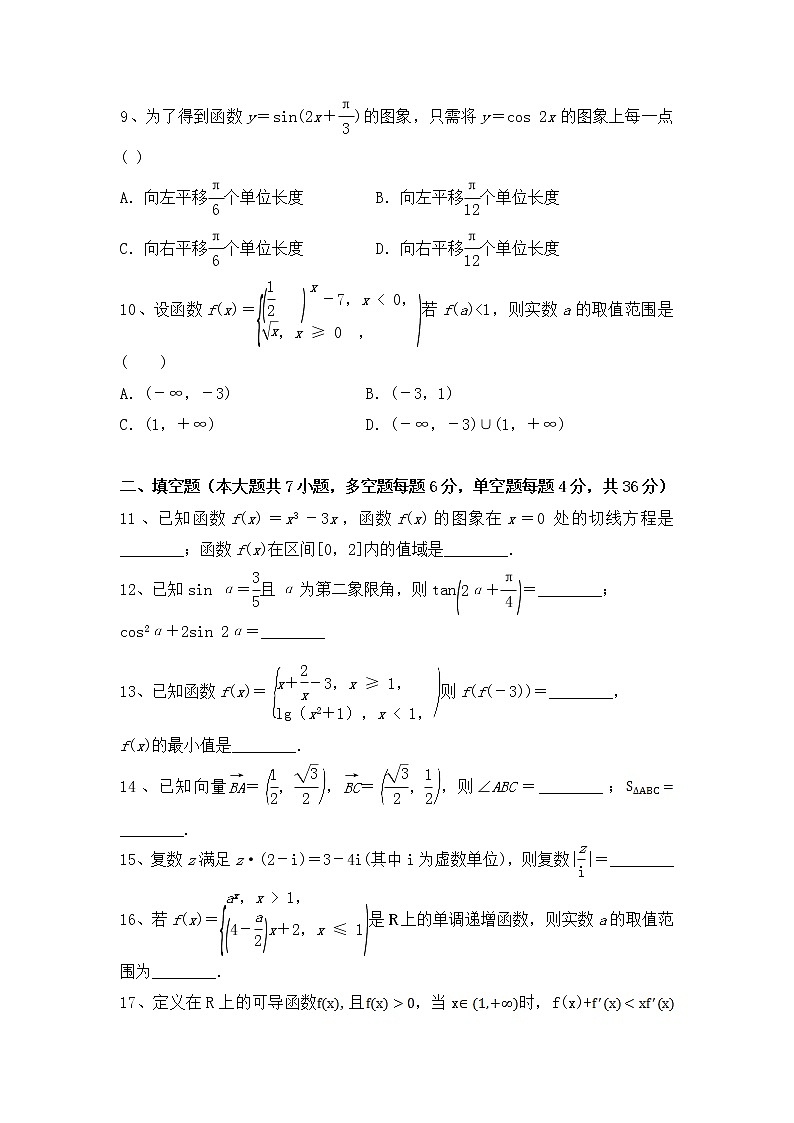 9、为了得到函数 y＝sin(2x＋π/3)的图象，只需将 y＝cos 2x 的图象上每一点
( )
A．向左平移π/6个单位长度 B．向左平移π/12个单位长度
C．向右平移π/6个单位长度 D．向右平移π/12个单位长度
10、设函数 f(x)＝{(1/2)^x－7，x < 0，
√x，x ≥ 0 ， 若 f(a)<1，则实数 a 的取值范围是
( )
A．(－∞，－3) B．(－3，1)
C．(1，＋∞) D．(－∞，－3)∪(1，＋∞)
二、填空题（本大题共 7 小题，多空题每题 6 分，单空题每题 4 分，共 36 分）
11 、已知函数 f(x) ＝x³ －3x，函数 f(x) 的图象在 x＝0 处的切线方程是
________；函数 f(x)在区间[0，2]内的值域是________．
12、已知 sin α＝3/5且 α 为第二象限角，则 tan(2α＋π/4)＝________；
cos²α＋2sin 2α＝________
13、已知函数 f(x)＝ {x＋2/x－3，x ≥ 1，
lg（x²＋1），x < 1， 则 f(f(－3))＝________，
f(x)的最小值是________．
14 、已知向量→BA＝(1/2，√3/2)，→BC＝(√3/2，1/2)，则∠ABC＝________；S△ABC＝
________．
15、复数 z 满足 z·(2－i)＝3－4i(其中 i 为虚数单位)，则复数|z/i|＝________
16、若 f(x)＝{a^x，x > 1，
(4－a/2)x＋2，x ≤ 1 是 R 上的单调递增函数，则实数 a 的取值范
围为________．
17、定义在 R 上的可导函数f(x)，且f(x) > 0，当 x∈ (1,+∞)时，f(x)+f′(x) < xf′(x)